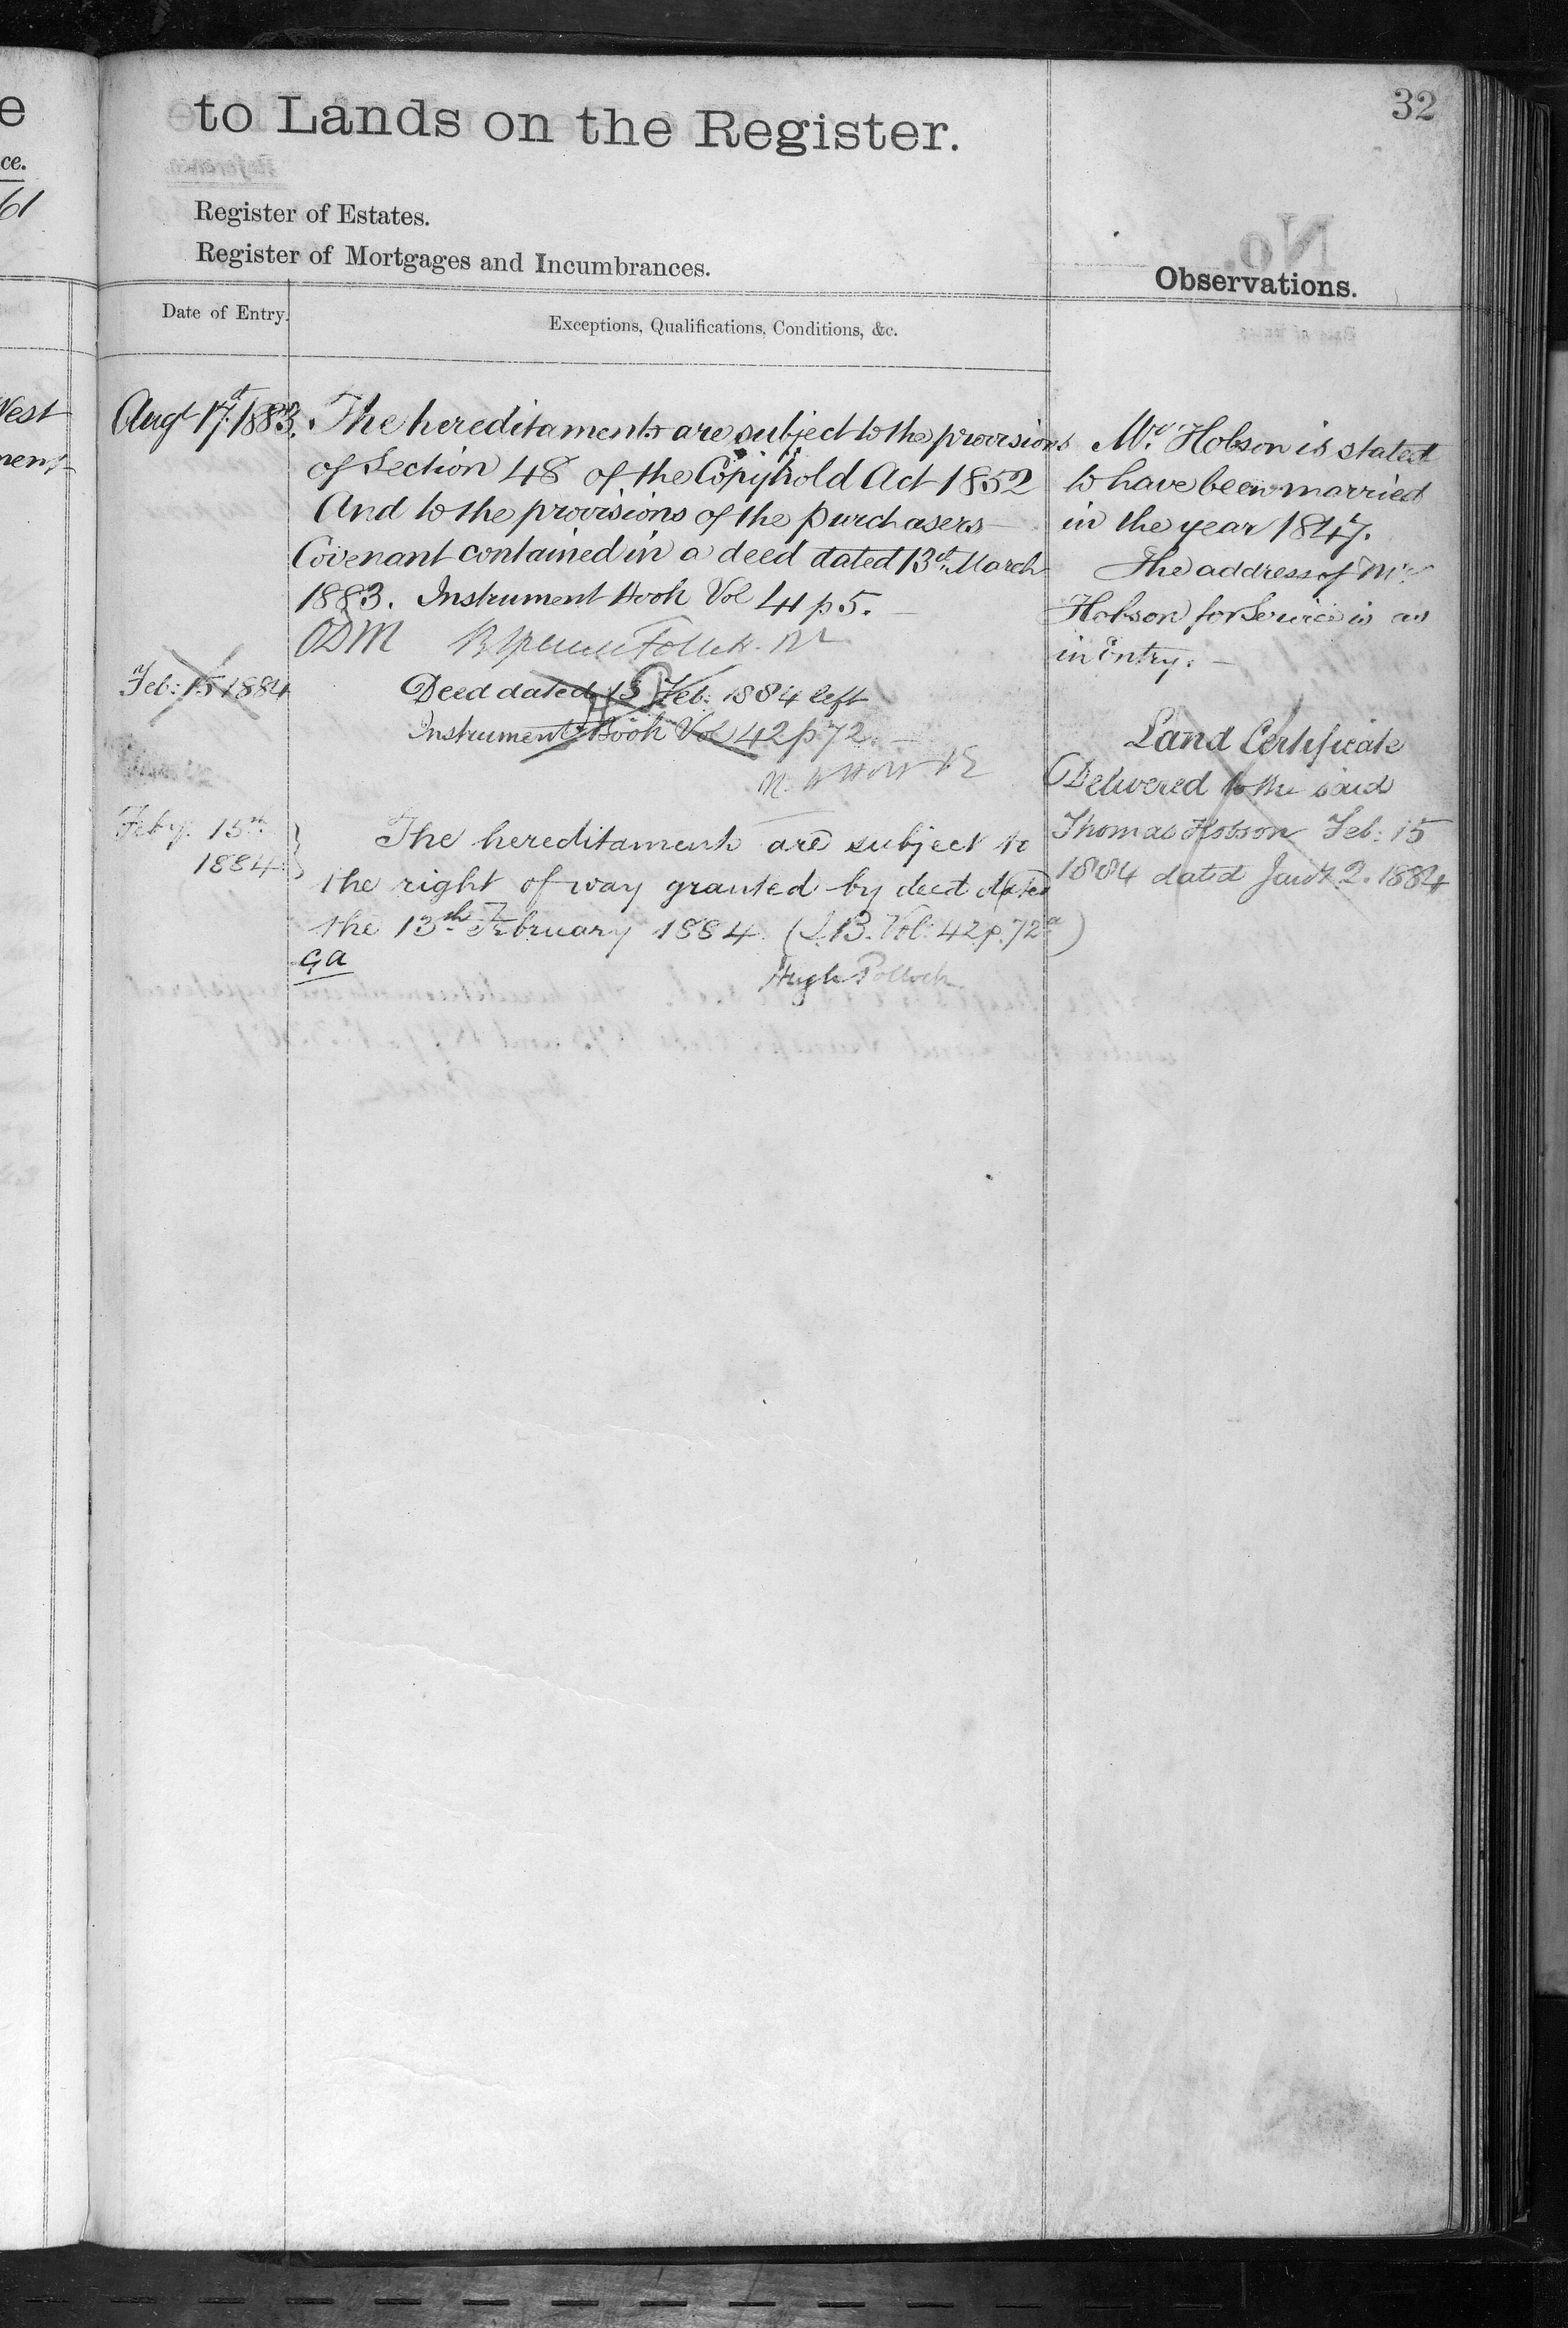 e
ce.
61
West
ment
32
to Lands on the Register.
Register of Estates.
Register of Mortgages and Incumbrances.
Observations.
Date of Entry.
Exceptions, Qualifications, Conditions, &c.
Augt 17th 1883.
The hereditaments are subject to the provisions
of Section 48 of the Copyhold Act 1852
And to the provisions of the purchasers
Covenant contained in a deed dated 13th March
1883. Instrument Book Vol 41 p 5.
ODM
Feb: 15 1884
Deed dated 13 Feb: 1884 left
Instrument Book Vol 42 p 72.
Feby. 15th
1884
The hereditaments are subject to
the right of way granted by deed dated
the 13th February 1884. (I.B. Vol: 42 p. 72a)
GA
Hugh Pollock
Mr. Hobson is stated
to have been married
in the year 1847.
The address of Mr.
Hobson for Service is as
in Entry.
Land Certificate
Delivered to the said
Thomas Hobson Feb: 15
1884 dated Jany 2. 1884